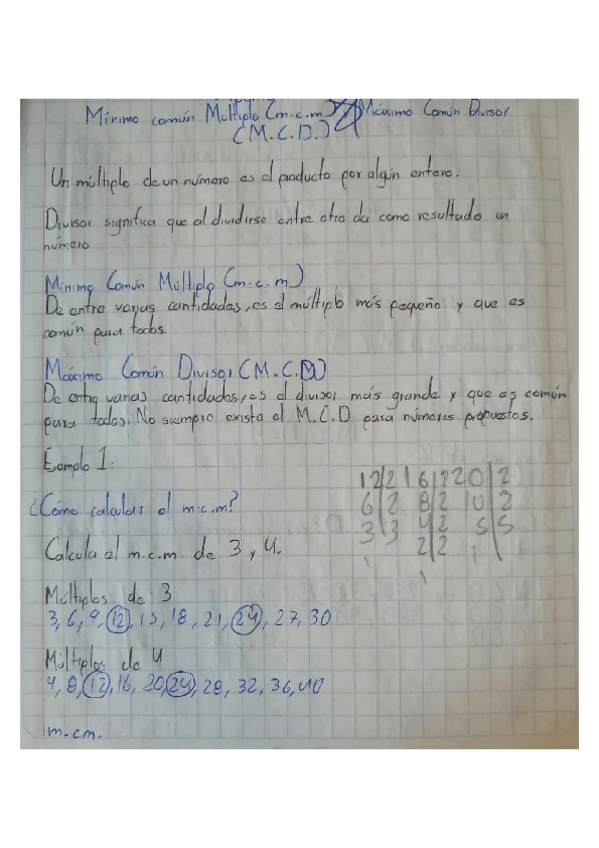 Mínimo común Múltiplo (m.c.m) y Máximo Común Divisor
(M.C.D.)
Un múltiplo de un número es el producto por algún entero.
Divisor significa que al dividirse entre otro da como resultado un
número
Mínimo Común Múltiplo (m.c.m)
De entre varias cantidades, es el múltiplo más pequeño y que es
común para todos.
Máximo Común Divisor (M.C.D)
De entre varias cantidades, es el divisor más grande y que es común
para todos. No siempre existe el M.C.D para números propuestos.
Ejemplo 1:
12|2 16|2 20|2
6|2 8|2 10|2
3|3 4|2 5|5
1 2|2 1
1
¿Cómo calculas el m.c.m?
Calcula el m.c.m de 3 y 4.
Múltiplos de 3
3, 6, 9, 12, 15, 18, 21, 24, 27, 30
Múltiplos de 4
4, 8, 12, 16, 20, 24, 28, 32, 36, 40
m.cm.